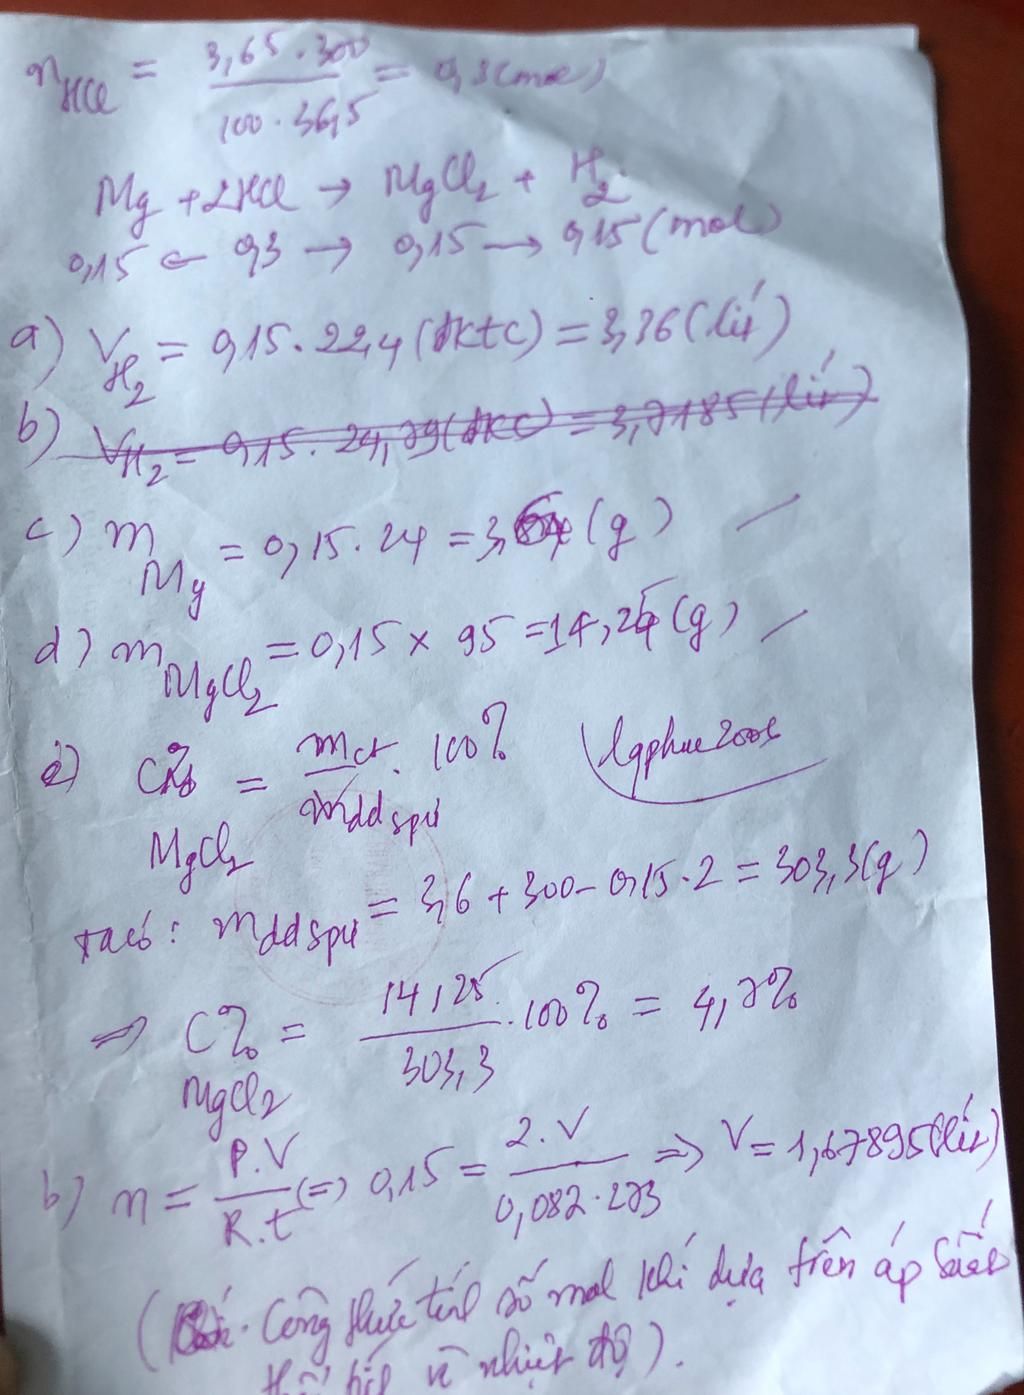 n HCl = 3,65 . 300 / 100 . 36,5 = 0,3 (mol)
Mg + 2HCl → MgCl2 + H2
0,15 ← 0,3 → 0,15 → 0,15 (mol)
a) V H2 = 0,15 . 22,4 (đktc) = 3,36 (lít)
b) V H2 = 0,15 . 24,79 (đkc) = 3,7185 (lít)
c) m Mg = 0,15 . 24 = 3,6 (g)
d) m MgCl2 = 0,15 × 95 = 14,25 (g)
e) C% MgCl2 = mct / mdd spứ . 100%
lqphuc2006
ta có : mdd spứ = 3,6 + 300 - 0,15 . 2 = 303,3 (g)
=> C% MgCl2 = 14,25 / 303,3 . 100% = 4,7%
b) n = P.V / R.t (=) 0,15 = 2.V / 0,082 . 273 => V = 1,67895 (lít)
( Công thức tính số mol khí dựa trên áp suất
thể tích và nhiệt độ ).